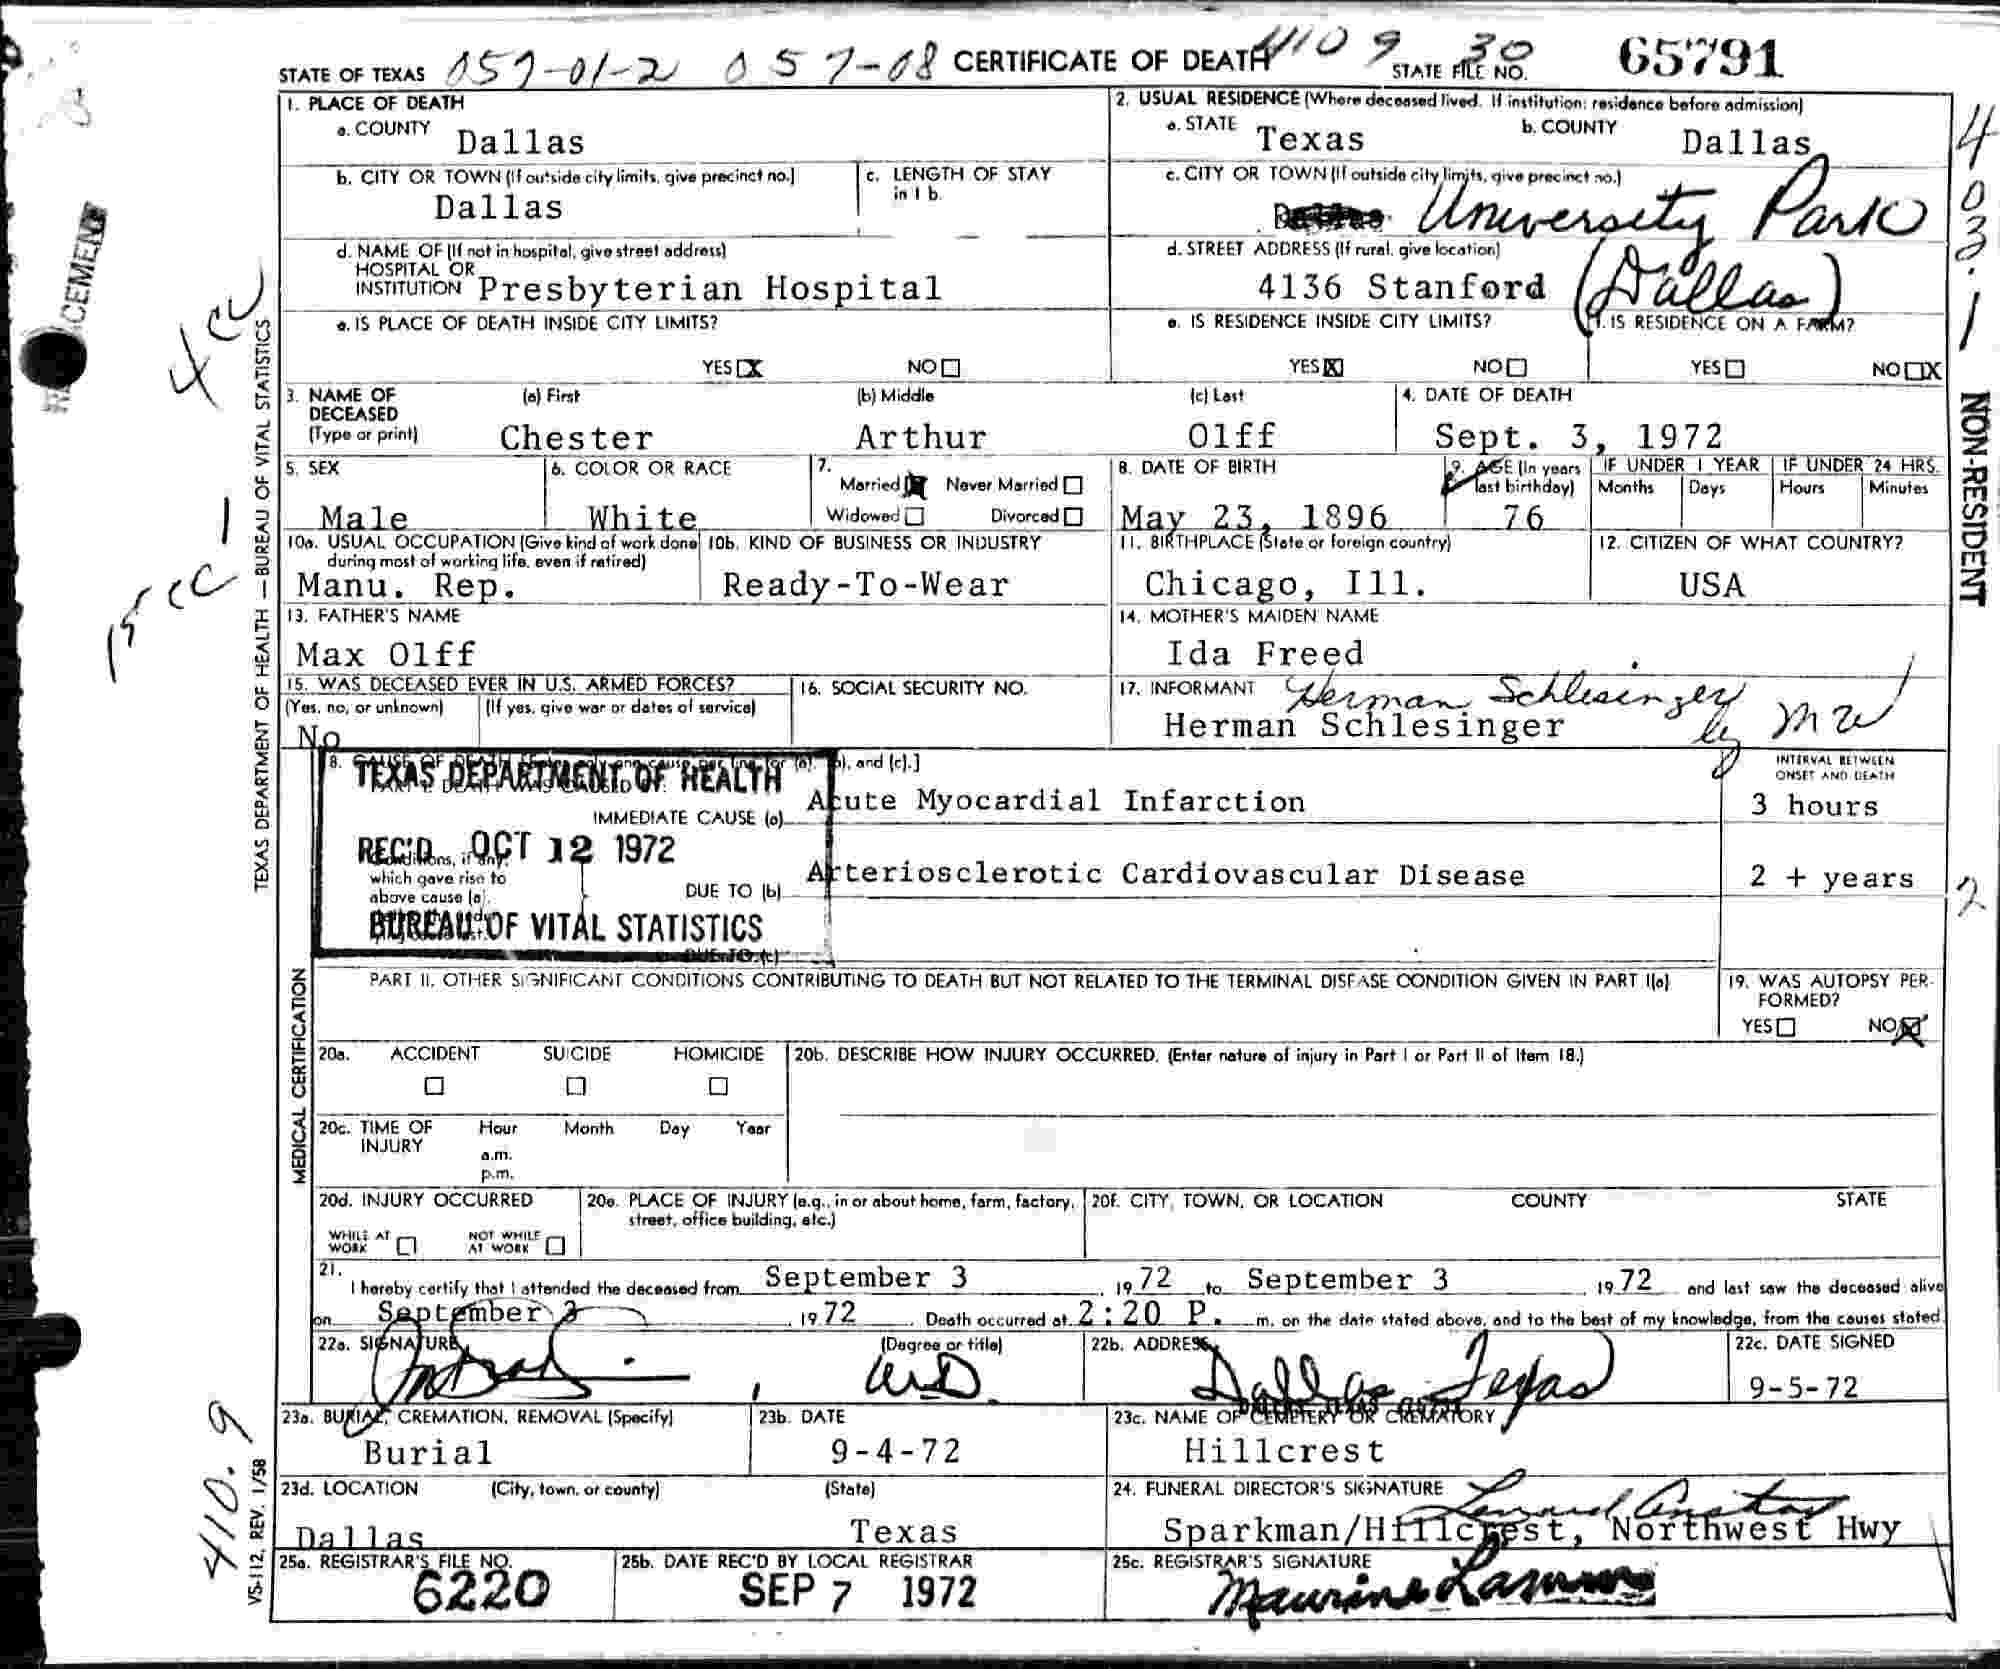 STATE OF TEXAS 057-01-2 057-08 CERTIFICATE OF DEATH 4109 30 STATE FILE NO. 65791
1. PLACE OF DEATH
a. COUNTY Dallas
2. USUAL RESIDENCE (Where deceased lived. If institution: residence before admission)
a. STATE Texas b. COUNTY Dallas
b. CITY OR TOWN (If outside city limits, give precinct no.) Dallas
c. LENGTH OF STAY in 1 b.
c. CITY OR TOWN (If outside city limits, give precinct no.)
University Park
d. NAME OF (If not in hospital, give street address)
HOSPITAL OR
INSTITUTION Presbyterian Hospital
d. STREET ADDRESS (If rural, give location)
4136 Stanford (Dallas)
e. IS PLACE OF DEATH INSIDE CITY LIMITS?
YES X NO
e. IS RESIDENCE INSIDE CITY LIMITS?
YES X NO
f. IS RESIDENCE ON A FARM?
YES NO X
3. NAME OF DECEASED (Type or print)
(a) First (b) Middle (c) Last
Chester Arthur Olff
4. DATE OF DEATH
Sept. 3, 1972
5. SEX
Male
6. COLOR OR RACE
White
7.
Married Never Married
Widowed Divorced
8. DATE OF BIRTH
May 23, 1896
9. AGE (In years last birthday)
76
IF UNDER 1 YEAR
Months Days
IF UNDER 24 HRS.
Hours Minutes
10a. USUAL OCCUPATION (Give kind of work done during most of working life, even if retired)
Manu. Rep.
10b. KIND OF BUSINESS OR INDUSTRY
Ready-To-Wear
11. BIRTHPLACE (State or foreign country)
Chicago, Ill.
12. CITIZEN OF WHAT COUNTRY?
USA
13. FATHER'S NAME
Max Olff
14. MOTHER'S MAIDEN NAME
Ida Freed
15. WAS DECEASED EVER IN U.S. ARMED FORCES?
(Yes, no, or unknown) (If yes, give war or dates of service)
No
16. SOCIAL SECURITY NO.
17. INFORMANT Herman Schlesinger
Herman Schlesinger by MW
TEXAS DEPARTMENT OF HEALTH
REC'D OCT 12 1972
BUREAU OF VITAL STATISTICS
and (c).]
INTERVAL BETWEEN ONSET AND DEATH
IMMEDIATE CAUSE (a) Acute Myocardial Infarction 3 hours
Conditions, if any,
which gave rise to
above cause (a),
DUE TO (b) Arteriosclerotic Cardiovascular Disease 2 + years
DUE TO (c)
PART II. OTHER SIGNIFICANT CONDITIONS CONTRIBUTING TO DEATH BUT NOT RELATED TO THE TERMINAL DISEASE CONDITION GIVEN IN PART I(a)
19. WAS AUTOPSY PERFORMED?
YES NO X
20a. ACCIDENT SUICIDE HOMICIDE
20b. DESCRIBE HOW INJURY OCCURRED. (Enter nature of injury in Part I or Part II of Item 18.)
20c. TIME OF INJURY Hour Month Day Year
a.m.
p.m.
20d. INJURY OCCURRED
WHILE AT WORK NOT WHILE AT WORK
20e. PLACE OF INJURY (e.g., in or about home, farm, factory, street, office building, etc.)
20f. CITY, TOWN, OR LOCATION COUNTY STATE
21.
I hereby certify that I attended the deceased from September 3, 1972 to September 3, 1972 and last saw the deceased alive
on September 3, 1972. Death occurred at 2:20 P. m. on the date stated above, and to the best of my knowledge, from the causes stated.
22a. SIGNATURE (Degree or title)
M.D.
22b. ADDRESS
Dallas Texas
22c. DATE SIGNED
9-5-72
23a. BURIAL, CREMATION, REMOVAL (Specify)
Burial
23b. DATE
9-4-72
23c. NAME OF CEMETERY OR CREMATORY
Hillcrest
23d. LOCATION (City, town, or county) (State)
Dallas Texas
24. FUNERAL DIRECTOR'S SIGNATURE
Sparkman/Hillcrest, Northwest Hwy
25a. REGISTRAR'S FILE NO.
6220
25b. DATE REC'D BY LOCAL REGISTRAR
SEP 7 1972
25c. REGISTRAR'S SIGNATURE
Maurine
TEXAS DEPARTMENT OF HEALTH—BUREAU OF VITAL STATISTICS
MEDICAL CERTIFICATION
VS-112, REV. 1/58
4 cc
15 cc - 1
410.9
403.1
NON-RESIDENT
2